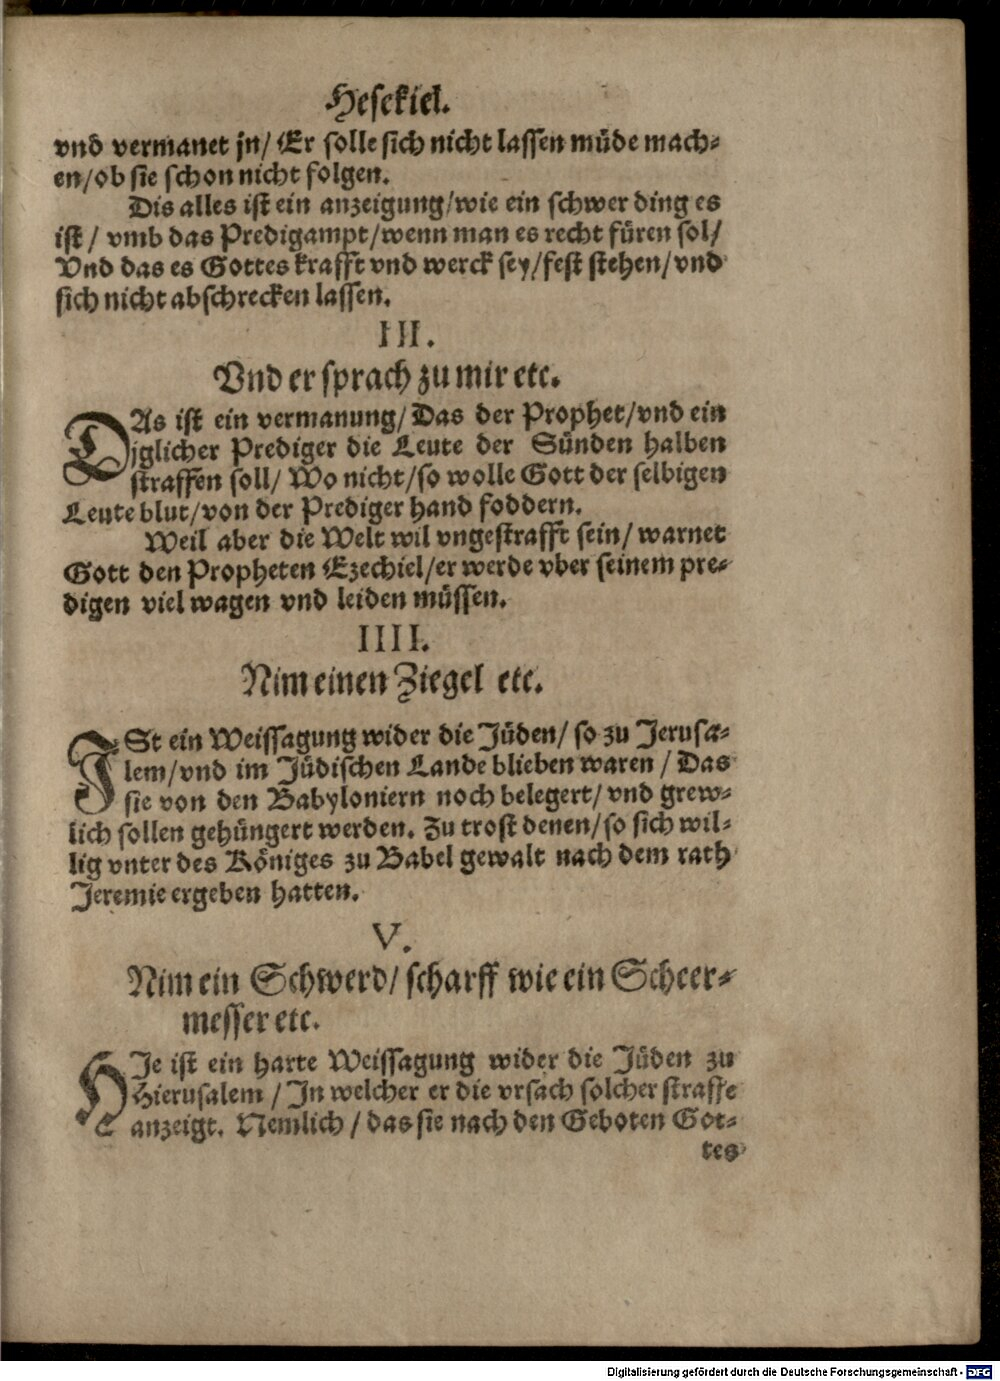 Hesekiel.
vnd vermanet jn/ Er solle sich nicht lassen müde mach-
en/ob sie schon nicht folgen.
Dis alles ist ein anzeigung/wie ein schwer ding es
ist / vmb das Predigampt/wenn man es recht füren sol/
Vnd das es Gottes krafft vnd werck sey/fest stehen/vnd
sich nicht abschrecken lassen.
III.
Vnd er sprach zu mir etc.
DAs ist ein vermanung/ Das der Prophet/vnd ein
jglicher Prediger die Leute der Sünden halben
straffen soll/ Wo nicht/so wolle Gott der selbigen
Leute blut/von der Prediger hand foddern.
Weil aber die Welt wil vngestrafft sein/ warnet
Gott den Propheten Ezechiel/er werde vber seinem pre-
digen viel wagen vnd leiden müssen.
IIII.
Nim einen Ziegel etc.
ISt ein Weissagung wider die Jüden/ so zu Jerusa-
lem/vnd im Jüdischen Lande blieben waren / Das
sie von den Babyloniern noch belegert/ vnd grew-
lich sollen gehüngert werden. Zu trost denen/so sich wil-
lig vnter des Königes zu Babel gewalt nach dem rath
Jeremie ergeben hatten.
V.
Nim ein Schwerd/ scharff wie ein Scheer-
messer etc.
HIe ist ein harte Weissagung wider die Jüden zu
Hierusalem / In welcher er die vrsach solcher straffe
anzeigt. Nemlich / das sie nach den Geboten Got-
tes
Digitalisierung gefördert durch die Deutsche Forschungsgemeinschaft - DFG